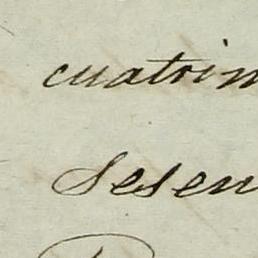 cuatrin
Sesen